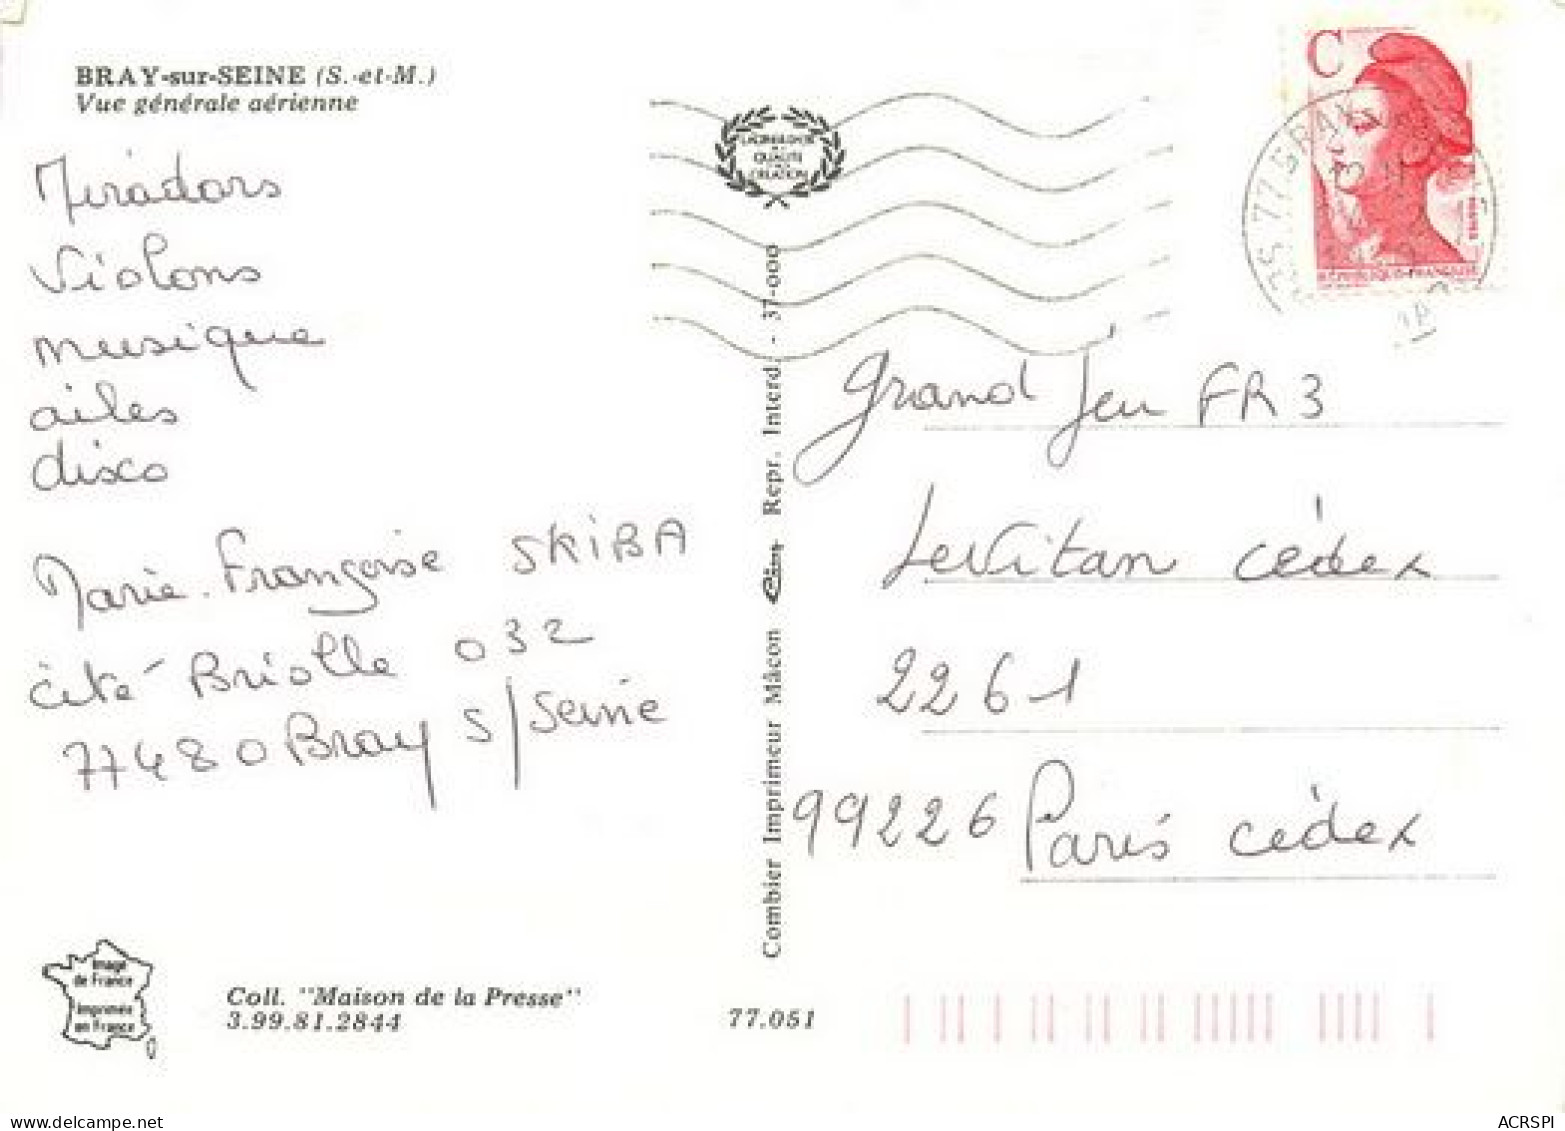 BRAY-sur-SEINE (S.-et-M.)
Vue générale aérienne
Miradors
Violons
musique
ailes
disco
Marie-Françoise SKIBA
cité Briolle 032
77480 Bray s/Seine
Image
de France
Imprimée
en France
Coll. "Maison de la Presse"
3.99.81.2844
77.051
Combier Imprimeur Mâcon Repr. Interd. - 37-000
QUALITÉ
CRÉATION
C
77 BRAY
RÉPUBLIQUE-FRANÇAISE
Grand Jeu FR3
LeVitan cédex
2261
99226 Paris cédex
ACRSPI